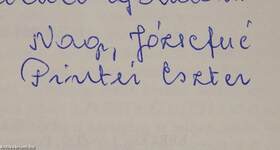 Nagy Józsefné
Pintér Eszter